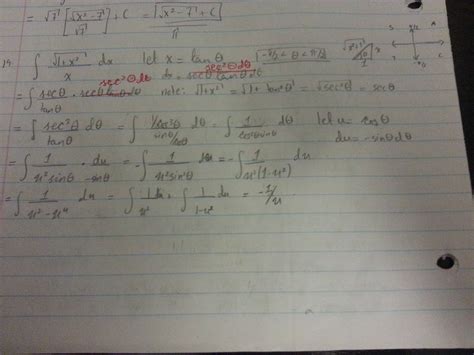 = √7 [√x² - 7 / √7] + C = [√x² - 7 + C]
∫ √1+x² / x dx let x = tanθ [-π/2 < θ < π/2]
sec²θ dθ dx = sec²θ dθ
= ∫ secθ / tanθ · sec²θ dθ note: √1+x² = √1+tan²θ = √sec²θ = secθ
= ∫ sec³θ dθ / tanθ = ∫ 1/cos³θ / sinθ/cosθ dθ = ∫ 1 / cos²θ sinθ dθ let u = cosθ
du = -sinθ dθ
= ∫ 1 / u² sinθ · du / -sinθ = -∫ 1 / u² sin²θ du = -∫ 1 / u²(1-u²) du
= ∫ 1 / u² - u⁴ du = ∫ 1 du / u² · ∫ 1 / 1-u² du = -1/u